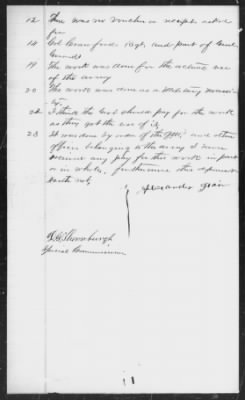 12 There was no voucher or receipt asked
for
14 Col Crawfords Regt, and part of Genl
19 The work was done for the actual use
of the army
20 The work was done as a Military necessi-
ty.
22 I think the Govt should pay for the work
as they got the use of it,
23 It was done by order of the and other
officers belonging to the army I never
received any pay for this work in part
or in whole, furthermore this deponent
saith not,
Alexander
Thornburgh
Special Commissioner
11